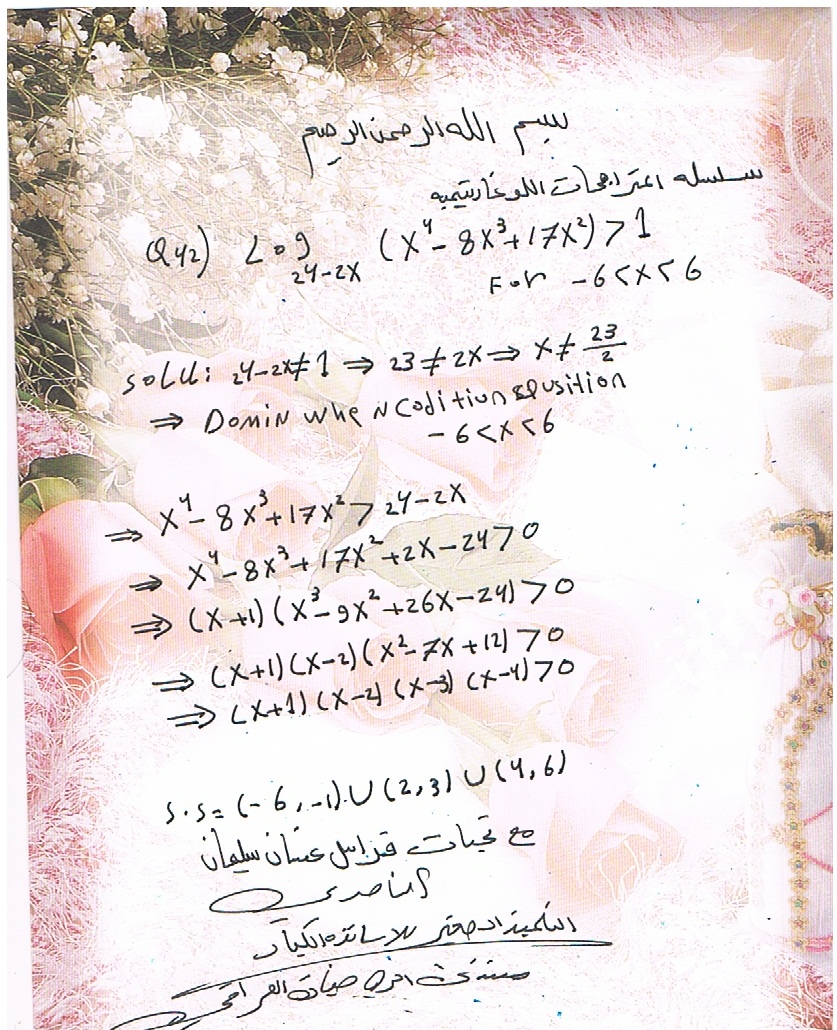 بسم الله الرحمن الرحيم
سلسله المتراجحات اللوغاريتميه
Q42) Log₂₄₋₂ₓ (x⁴ - 8x³ + 17x²) > 1
For -6 < x < 6
solu: 24-2x ≠ 1 ⇒ 23 ≠ 2x ⇒ x ≠ 23/2
⇒ Domin when coditiun
-6 < x < 6
⇒ x⁴ - 8x³ + 17x² > 24 - 2x
⇒ x⁴ - 8x³ + 17x² + 2x - 24 > 0
⇒ (x+1) (x³ - 9x² + 26x - 24) > 0
⇒ (x+1) (x-2) (x² - 7x + 12) > 0
⇒ (x+1) (x-2) (x-3) (x-4) > 0
S.S = (-6, -1) ∪ (2, 3) ∪ (4, 6)
مع تحيات فراس عدنان سليمان
الناصري
التلميذ الصغير للاساتذه الكبار
منتدى